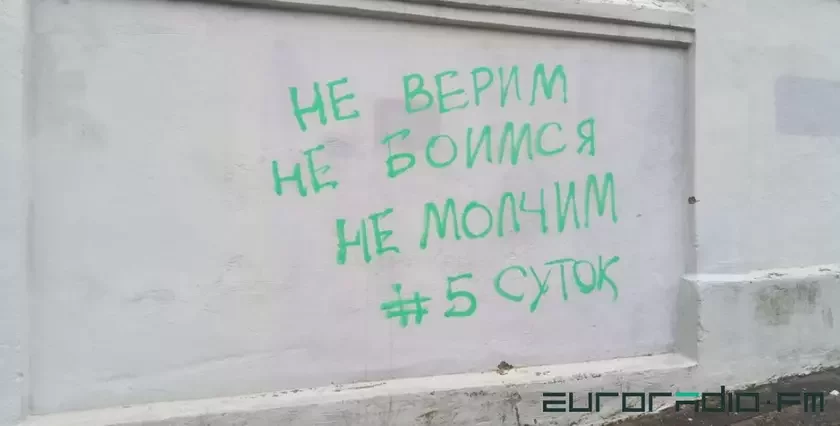 НЕ ВЕРИМ
НЕ БОИМСЯ
НЕ МОЛЧИМ
#5 СУТОК
EURORADIO·FM